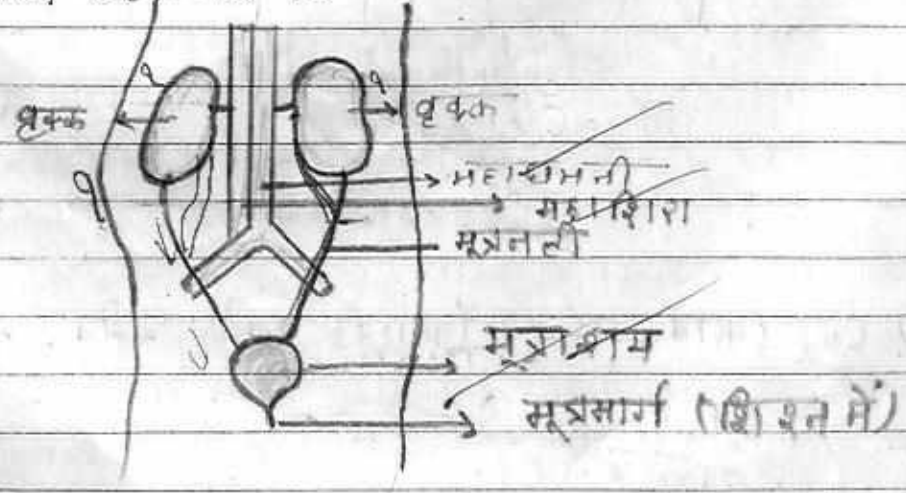 वृक्क
वृक्क
महाधमनी
महाशिरा
मूत्रनली
मूत्राशय
मूत्रमार्ग (शिश्न में)